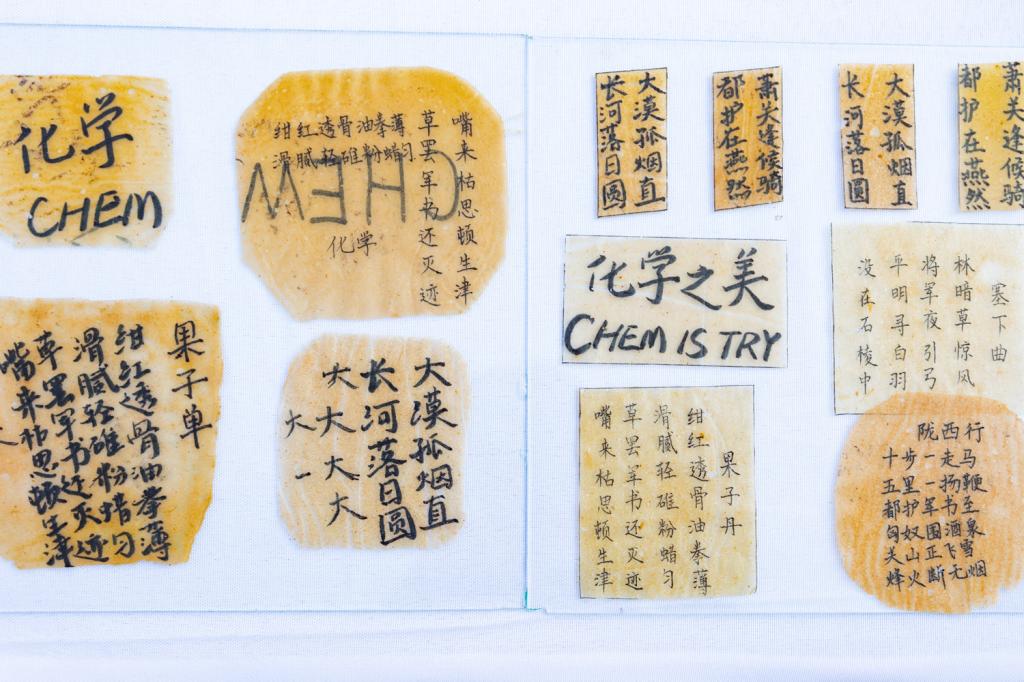 化学
CHEM
嘴来枯思顿生津
草罢军书还灭迹
绀红透骨油拳薄
滑腻轻碓粉蜡匀
CHEM
化学
果子单
绀红透骨油拳薄
滑腻轻碓粉蜡匀
草罢军书还灭迹
嘴来枯思顿生津
大漠孤烟直
长河落日圆
大大大大
大一
大漠孤烟直
长河落日圆
萧关逢候骑
都护在燕然
大漠孤烟直
长河落日圆
萧关逢候骑
都护在燕然
化学之美
CHEM IS TRY
塞下曲
林暗草惊风
将军夜引弓
平明寻白羽
没在石棱中
果子丹
绀红透骨油拳薄
滑腻轻碓粉蜡匀
草罢军书还灭迹
嘴来枯思顿生津
陇西行
十步一走马
五里一扬鞭
都护军书至
匈奴围酒泉
关山正飞雪
烽火断无烟